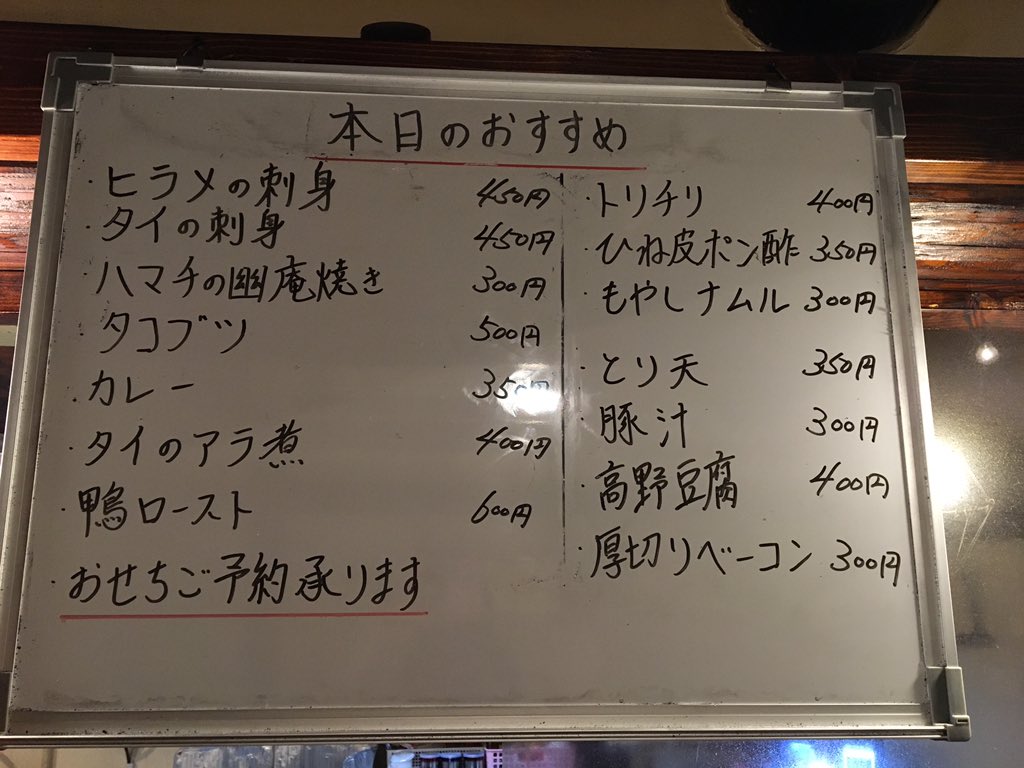 本日のおすすめ
・ヒラメの刺身 450円
・タイの刺身 450円
・ハマチの幽庵焼き 300円
・タコブツ 500円
・カレー 350円
・タイのアラ煮 400円
・鴨ロースト 600円
・おせちご予約承ります
・トリチリ 400円
・ひね皮ポン酢 350円
・もやしナムル 300円
・とり天 350円
・豚汁 300円
・高野豆腐 400円
・厚切りベーコン 300円